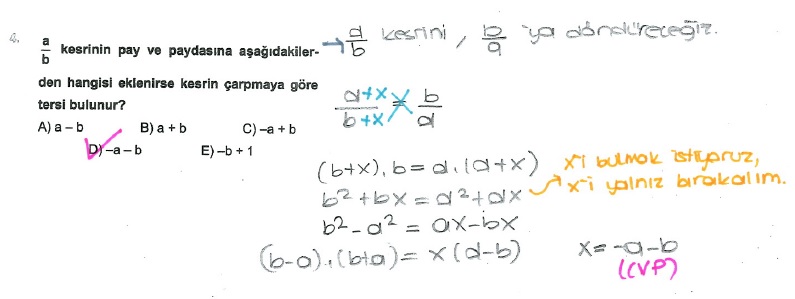 2.
a/b kesrinin pay ve paydasına aşağıdakiler-
den hangisi eklenirse kesrin çarpmaya göre
tersi bulunur?
A) a – b B) a + b C) –a + b
D) –a – b E) –b + 1
→ a/b kesrini, b/a 'ya döndüreceğiz.
(a+x)/(b+x) = b/a
(b+x).b = a.(a+x)
b² + bx = a² + ax
x'i bulmak istiyoruz,
x'i yalnız bırakalım.
b² - a² = ax - bx
(b-a).(b+a) = x(a-b)
x = -a-b
(CVP)